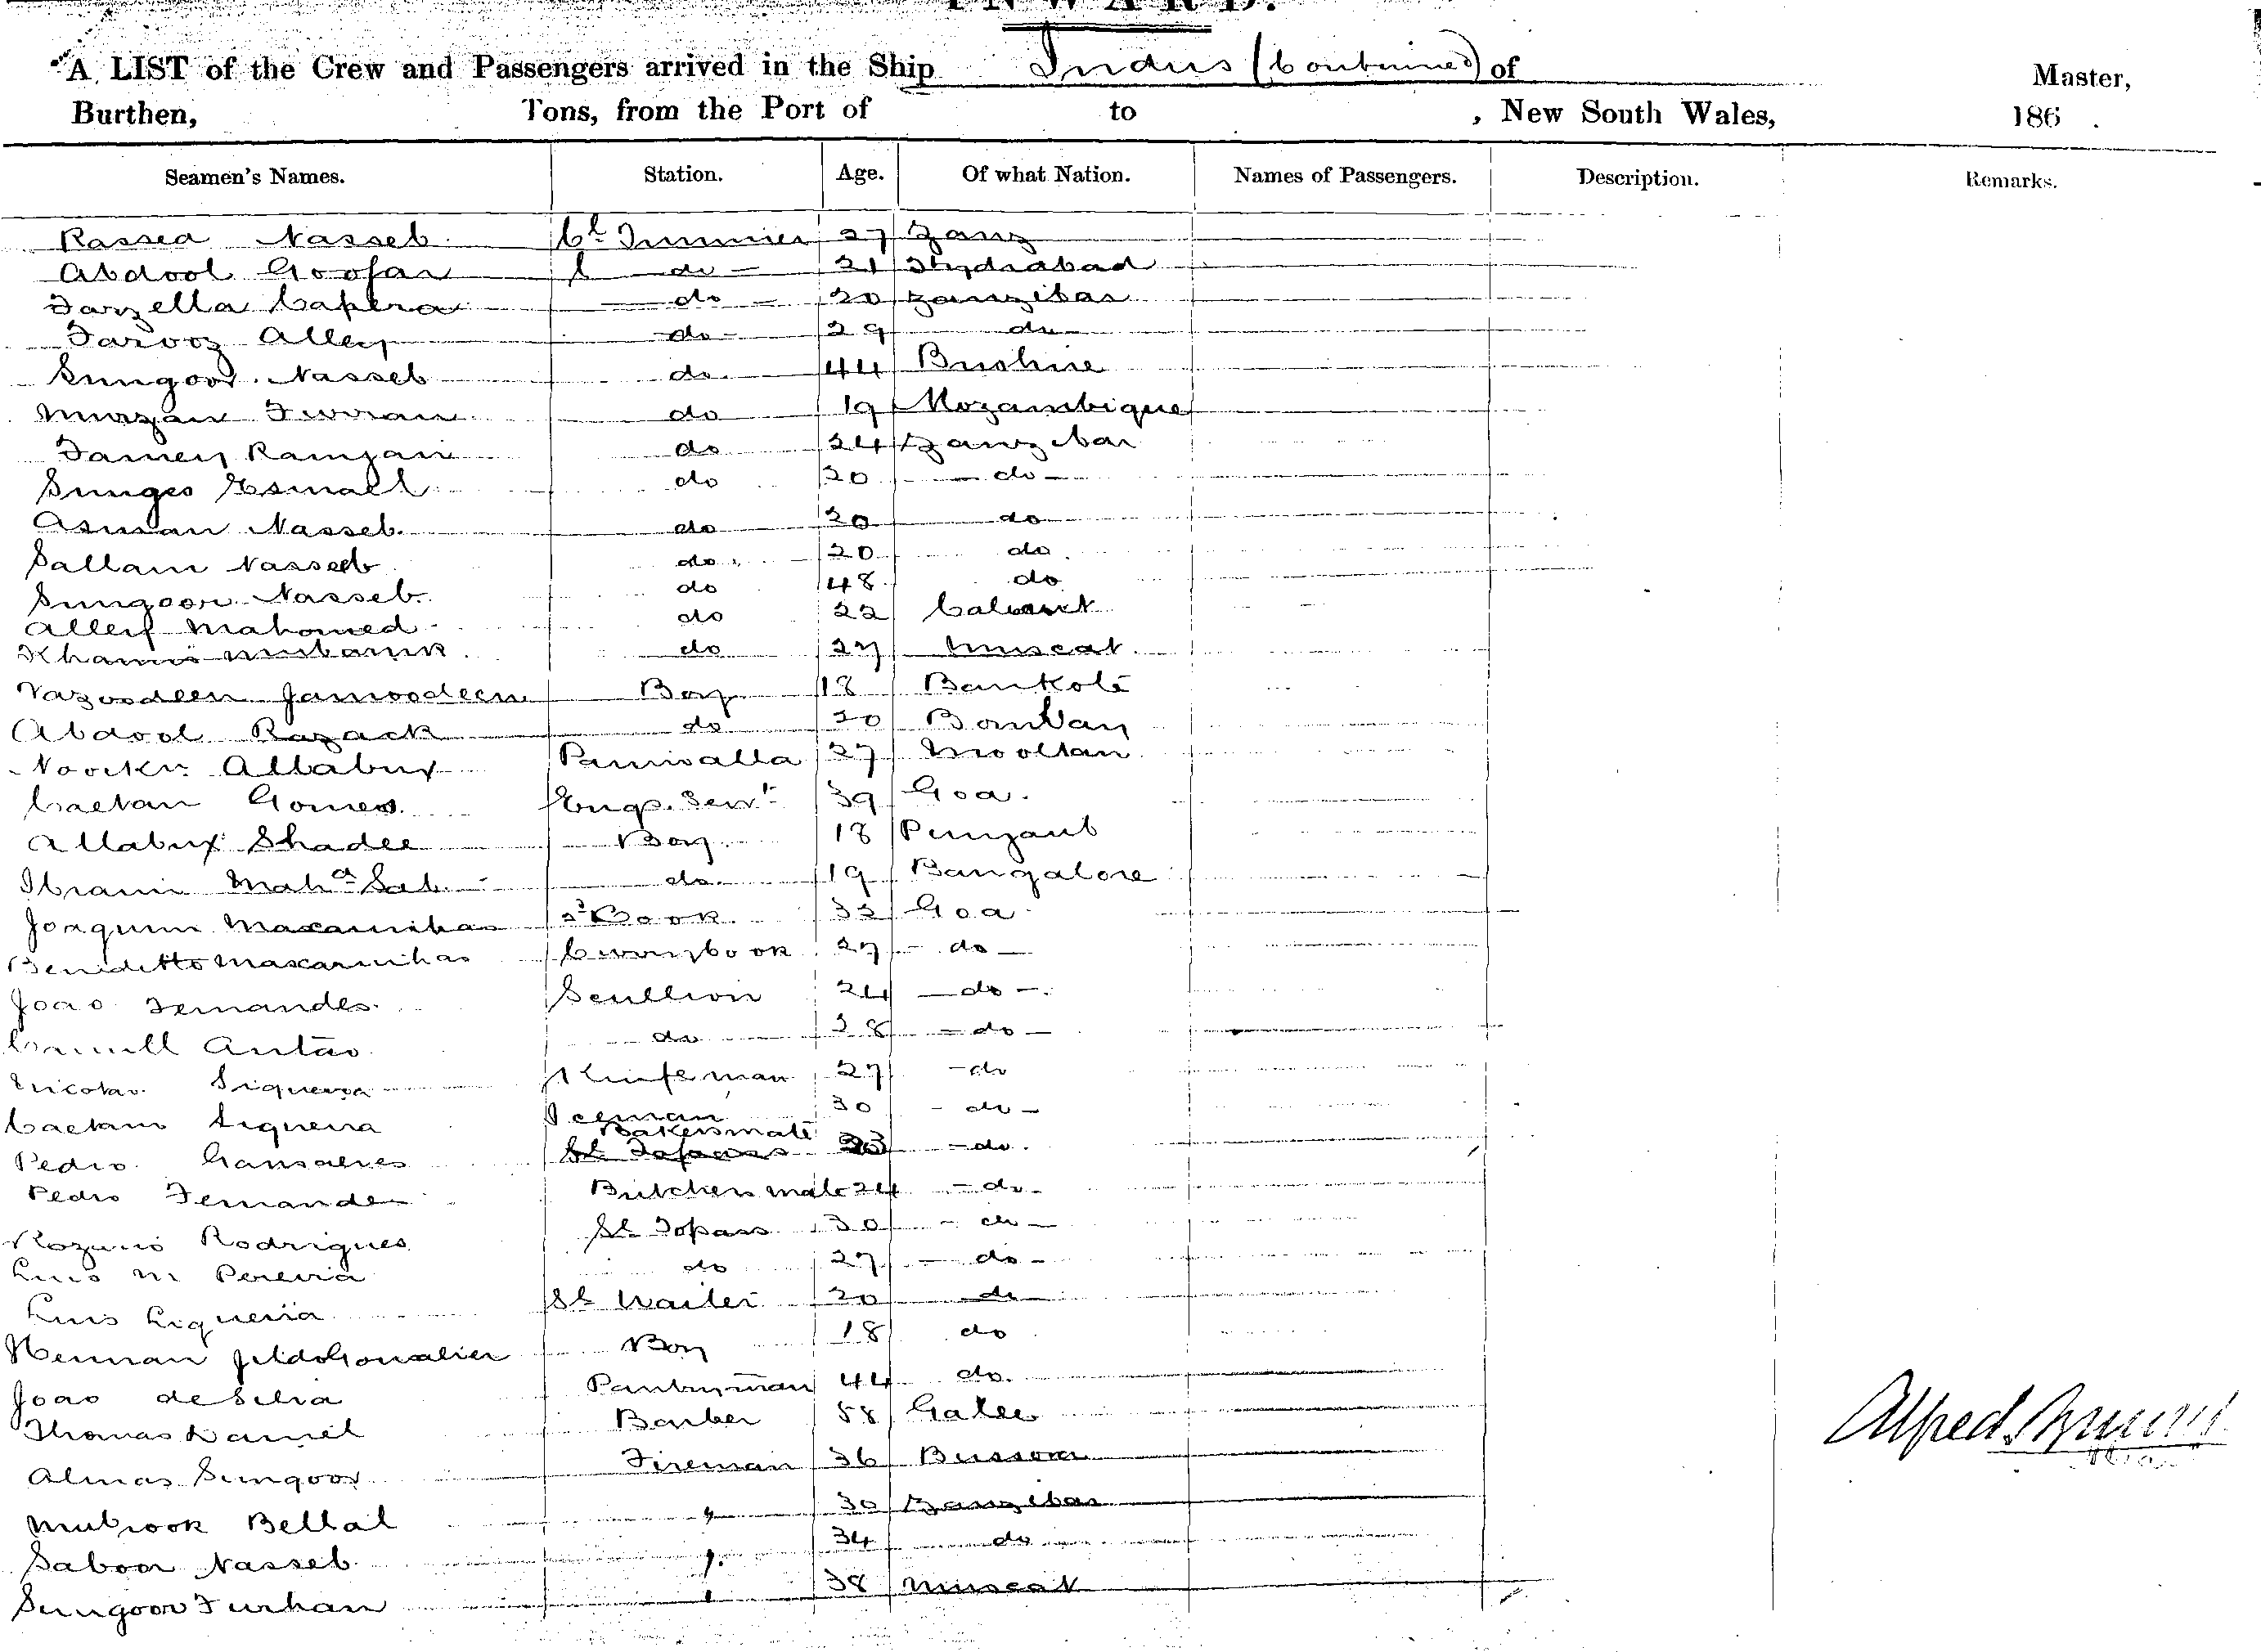 INWARD.
"A LIST of the Crew and Passengers arrived in the Ship Indus (Continued) of Master,
Burthen, Tons, from the Port of to , New South Wales, 186 .
Seamen's Names. Station. Age. Of what Nation. Names of Passengers. Description. Remarks.
Rassea Nasseb Cl Trimmer 27 Zanz
Abdool Goofar do 21 Hydrabad
Farzella do 20 Zanzibar
Farooz Alley do 29 do
Sungoor Nasseb do 44 Bushire
Murzan Furran do 19 Mozambique
Jamen Ramzan do 24 Zanzibar
Sunges Esmall do 20 do
Asman Nasseb do 20 do
Sallam Nasseb do 20 do
Sungoor Nasseb do 48 do
Alleif Mahomed do 22
Khamis Mubaruk do 27 Muscat
Vazoodeen Jamoodeen Boy 18 Bankote
Abdool Razack do 20
Allabux Paniwalla 27 Mooltan
Caetan Gomes Engs. Servt 39 Goa
Allabux Shadee Boy 18 Punjaub
Ibraim Maha Sab do 19 Bangalore
Joaquim Mascarinhas 2d Cook 32 Goa
Beniditto Mascarinhas 27 do
Joao Fernandes Scullion 24 do
Antao do 28 do
Nicolas Siqueira Knifeman 27 do
Caetano Siqueira 30 do
Pedro Gonsalves Bakersmate 23 do
Pedro Fernandes Butchers mate 24 do
Rozario Rodrigues Sl Topass 30 do
Luis M Pereira do 27 do
Luis Siqueira Sl Waiter 20 do
Boy 18 do
Joao de Silva Pantryman 44 do
Thomas Daniel Barber 58 Galle
Almas Sungoor Fireman 36 Bussora
Mubrook Bellal " 30 Zanzibar
Saboor Nasseb " 34 do
Sungoor Furhan " 38 Muscat
Alfred